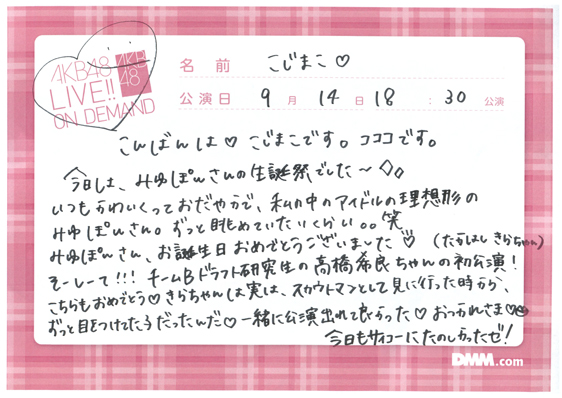 AKB48
LIVE!!
ON DEMAND
AKB
48
名 前 こじまこ♡
公演日 9 月 14 日 18 : 30 公演
こんばんは♡ こじまこです。コココです。
今日は、みゆぽんさんの生誕祭でした〜
いつもかわいくっておだやかで、私の中のアイドルの理想形の
みゆぽんさん。ずっと眺めていたいくらい。。笑
みゆぽんさん、お誕生日おめでとうございました♡ (たかはし きらちゃん)
そーしーて!!! チームBドラフト研究生の高橋希良ちゃんの初公演!
こちらもおめでとう♡きらちゃんは実は、スカウトマンとして見に行った時から、
ずっと目をつけてた子だったんだ♡一緒に公演出れて良かった♡おつかれさま♡
今日もサイコーにたのしかったゼ!
DMM.com